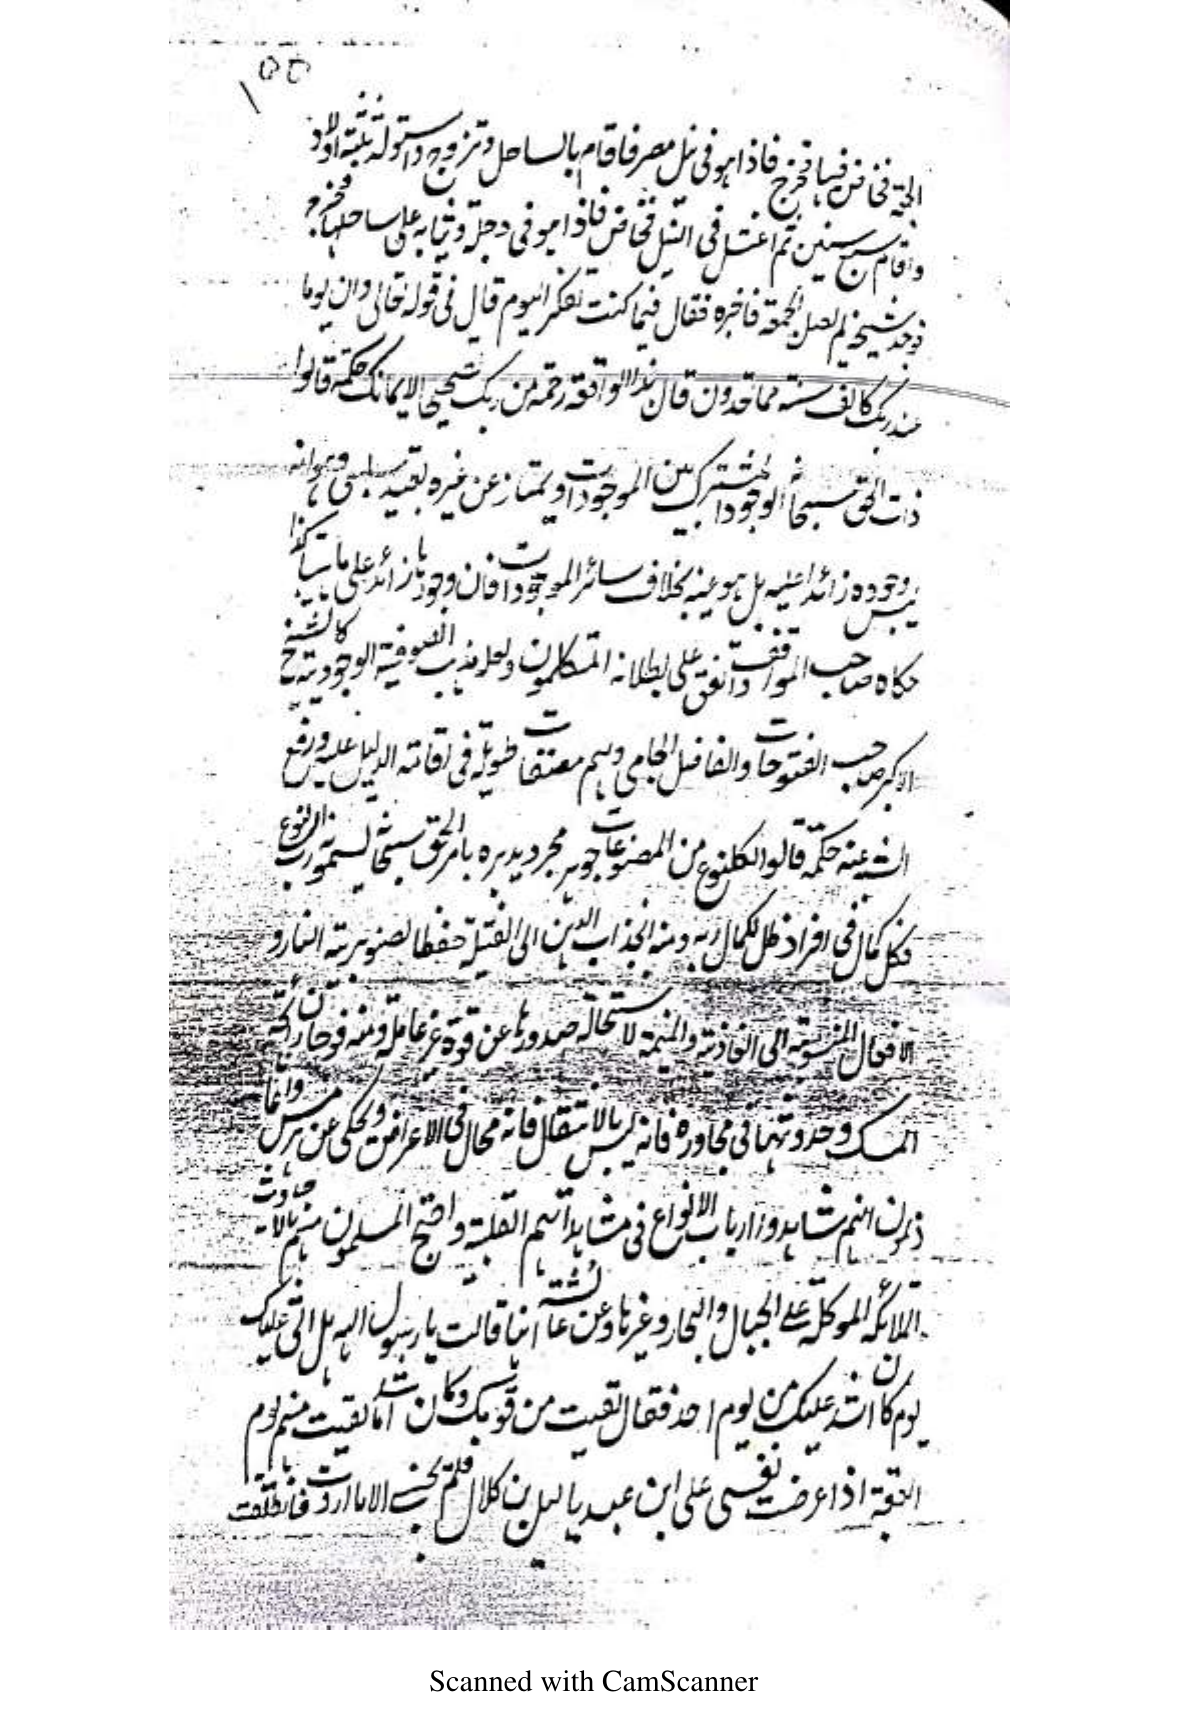 ١٥٥
الجبة فخاض فيها فخرج فاذا هو فى نيل مصر فاقام بالساحل وتزوج واستولد ثلثة اولاد
واقام سبع سنين ثم اغتسل فى النيل فخاض فاذا هو فى دجلة وثيابه على ساحلها فخرج
فوجد شيخه لم يصل الجمعة فاخبره فقال فيما كنت تفكر اليوم قال فى قوله تعالى وان يوما
عند ربك كالف سنة مما تعدون قال هذه الواقعة رحمة من ربك تصحيحا لايمانك حكمة قالوا
ذات الحق سبحانه الوجود المشترك بين الموجودات ويمتاز عن غيره بقيد سلبى وهو انه
ليس وجوده زائدا عليه بل هو عينه بخلاف سائر الموجودات فان وجودها زائد على ماهياتها كذا
حكاه صاحب المواقف واتفق على بطلانه المتكلمون ولعله مذهب الصوفية الوجودية كالشيخ
الاكبر صاحب الفتوحات والفاضل الجامى ولهم مصنفات طويلة فى اقامة الدليل عليه ورفع
الشبه عنه حكمة قالوا لكل نوع من المصنوعات جوهر مجرد يدبره بامر الحق سبحانه يسمونه رب النوع
فكل كمال فى افراد ظل لكمال ربه ومنه انجذاب الدهن الى الفتيلة حفظا لصنوبرية النار و
الافعال المنسوبة الى الغاذية والمنمية لاستحالة صدورها عن قوة غير عاقلة ومنه فوحان رائحة
المسك وحدوثها فى مجاوره فانه ليس بالانتقال فانه محال فى الاعراض ويحكى عن هرمس واغاثا
ذيمون انهم شاهدوا ارباب الانواع فى مشاهداتهم القلبية واحتج المسلمون منهم باحاديث
الملائكة الموكلة على الجبال والبحار وغيرها وعن عائشة انها قالت يا رسول الله هل اتى عليك
يوم كان اشد عليك من يوم احد فقال لقيت من قومك وكان اشد ما لقيت منهم يوم
العقبة اذا عرضت نفسى على ابن عبد ياليل بن كلال فلم يجبنى الى ما اردت فانطلقت
Scanned with CamScanner